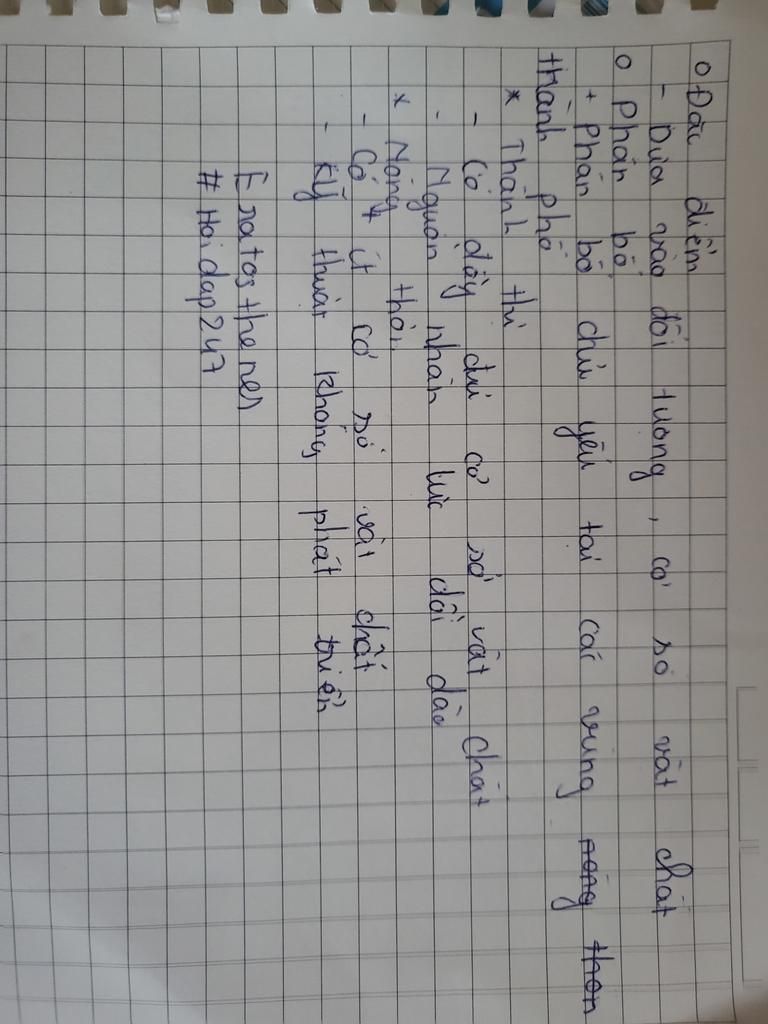 o Đăc điểm
- Dưa vào đối tương, cơ sở vât chất
o Phân bố
+ Phân bố chủ yếu tai các vùng nông thon
thành phố
* Thành thi
- Có đầy đủ cơ sở vât chất
- Nguồn nhân lưc dồi dào
* Nông thôn
- Có ít cơ sở vât chất
- Kỹ thuât không phát triển
Eratosthenes
# Hoidap247